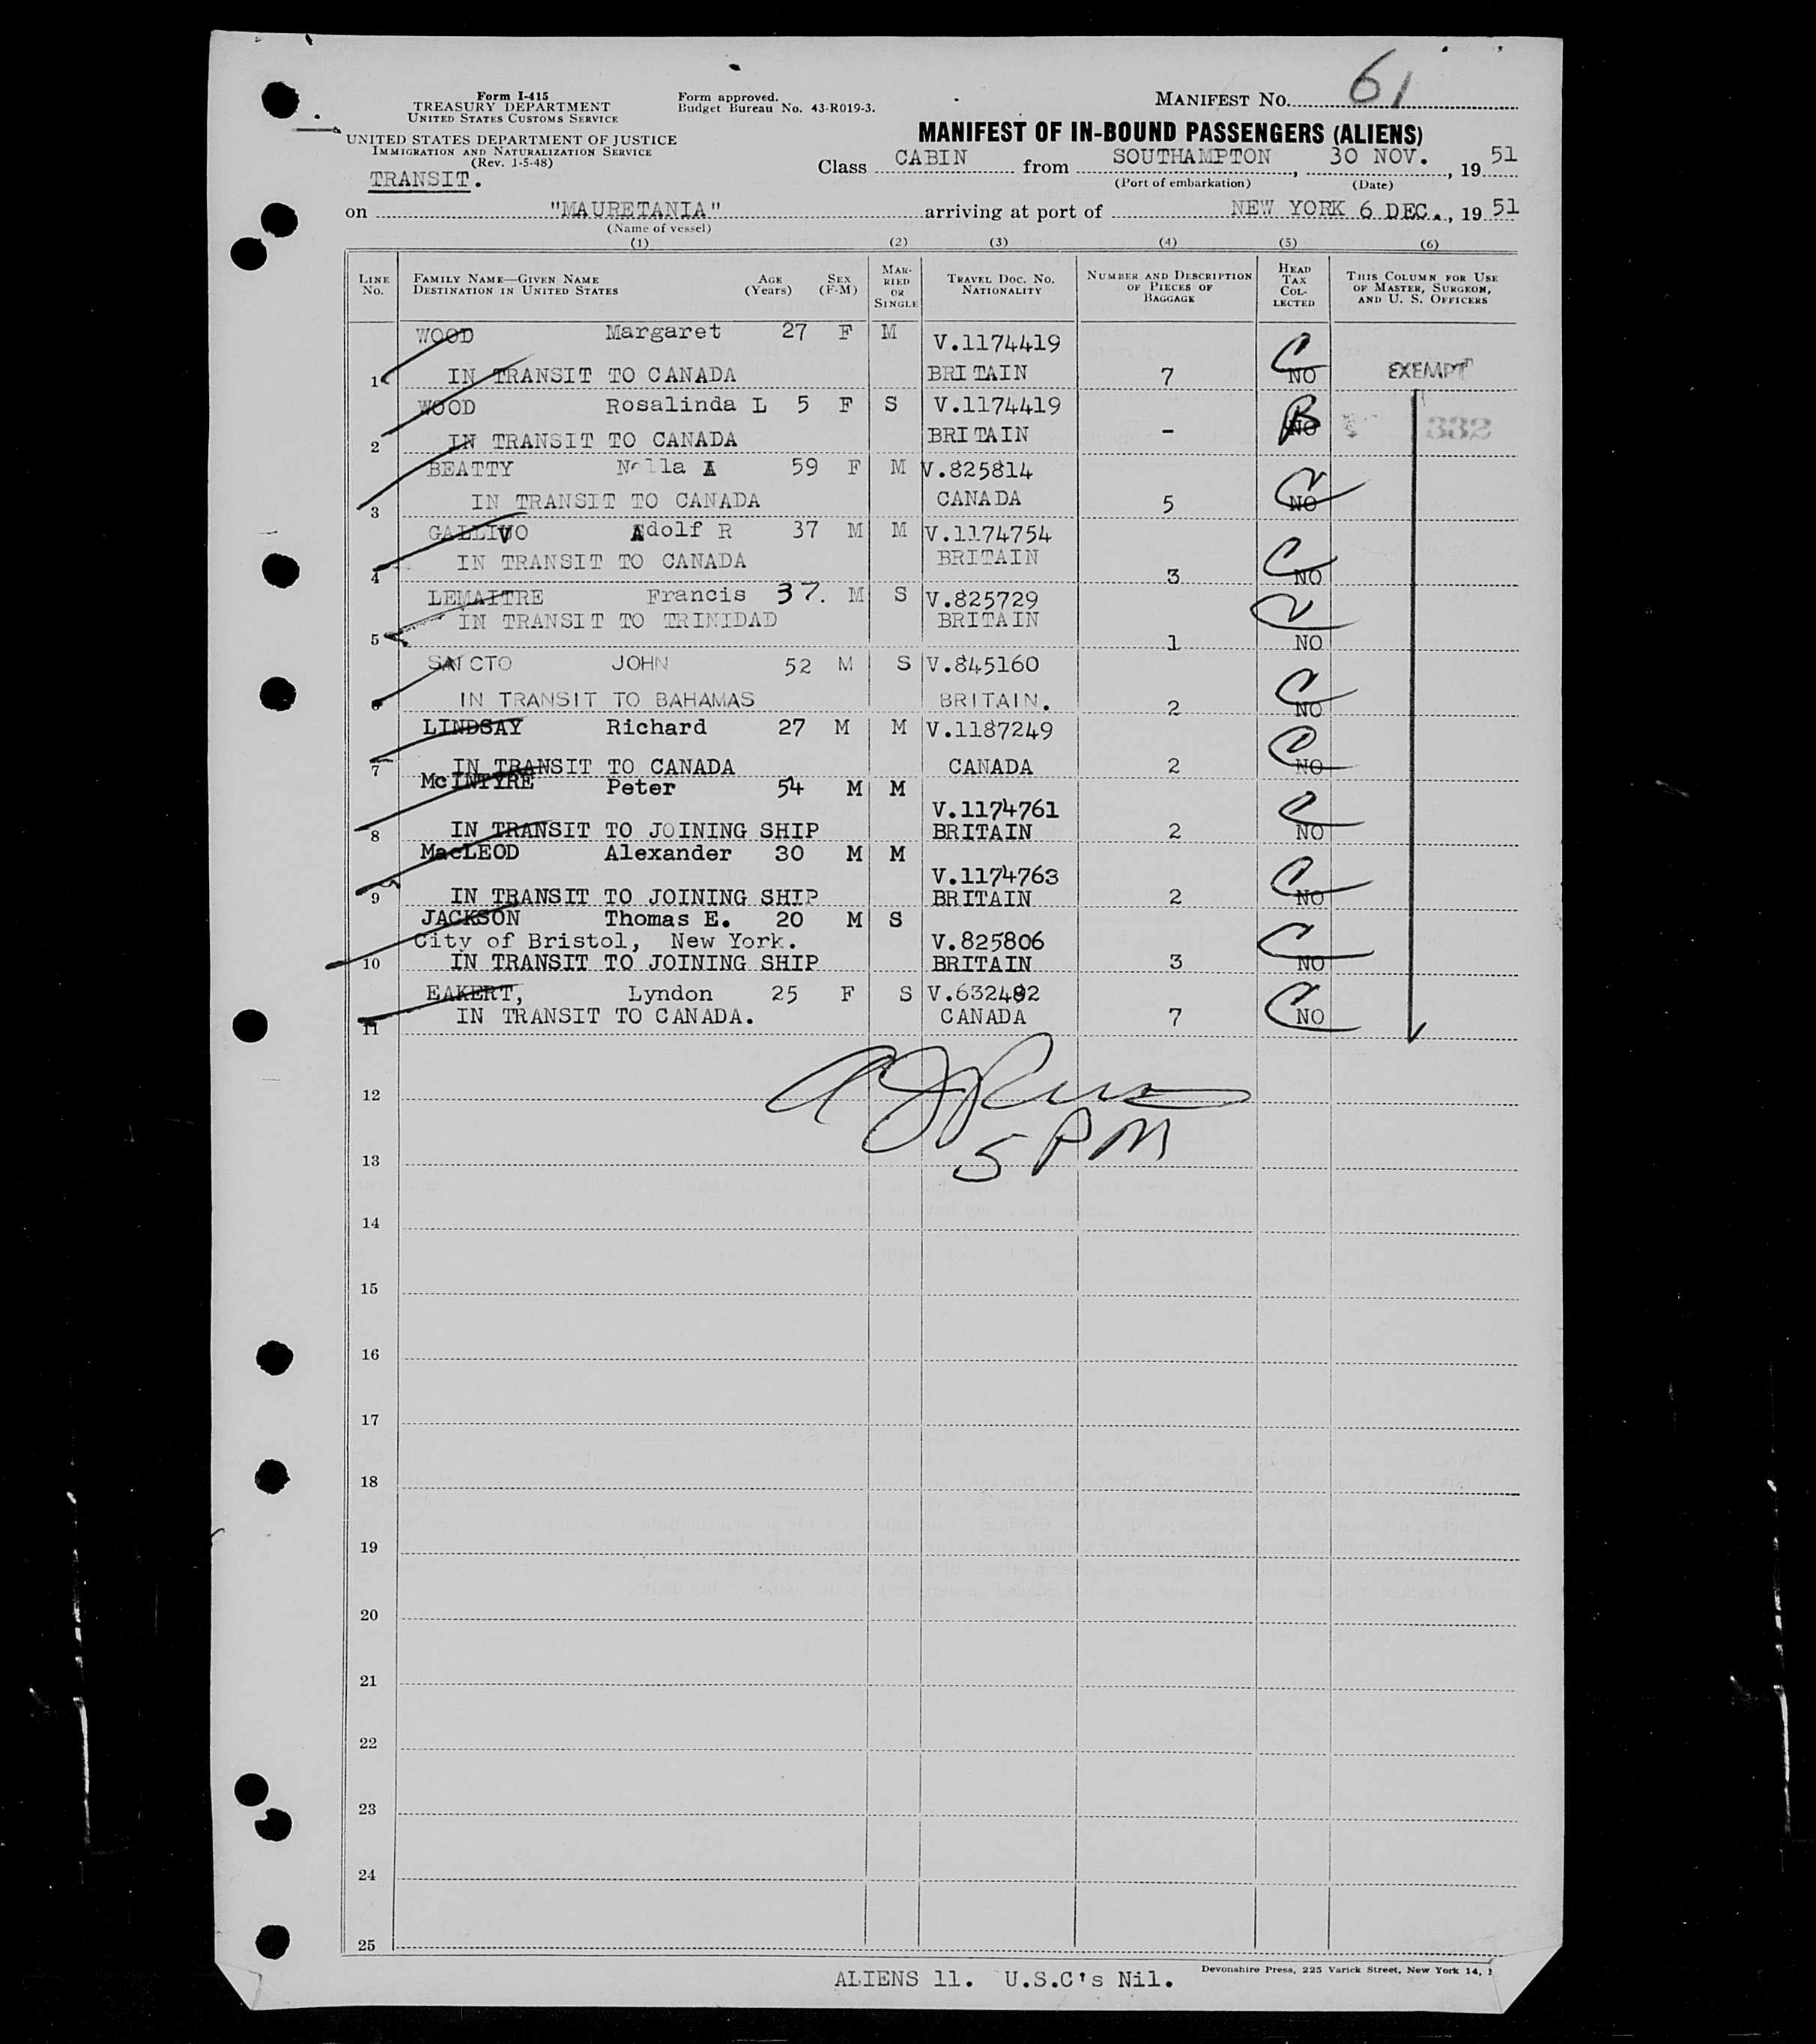 61
Form I-415
TREASURY DEPARTMENT
UNITED STATES CUSTOMS SERVICE
Form approved.
Budget Bureau No. 43-R019-3.
MANIFEST NO.
UNITED STATES DEPARTMENT OF JUSTICE
IMMIGRATION AND NATURALIZATION SERVICE
(Rev. 1-5-48)
MANIFEST OF IN-BOUND PASSENGERS (ALIENS)
TRANSIT.
Class CABIN from SOUTHAMPTON, 30 NOV., 1951
(Port of embarkation) (Date)
on "MAURETANIA" arriving at port of NEW YORK 6 DEC., 1951
(Name of vessel)
(1) (2) (3) (4) (5) (6)
LINE NO. FAMILY NAME—GIVEN NAME DESTINATION IN UNITED STATES AGE (Years) SEX (F-M) MARRIED OR SINGLE TRAVEL DOC. NO. NATIONALITY NUMBER AND DESCRIPTION OF PIECES OF BAGGAGE HEAD TAX COLLECTED THIS COLUMN FOR USE OF MASTER, SURGEON, AND U. S. OFFICERS
WOOD Margaret 27 F M V.1174419
1 IN TRANSIT TO CANADA BRITAIN 7 C NO EXEMPT
WOOD Rosalinda L 5 F S V.1174419
2 IN TRANSIT TO CANADA BRITAIN - NO 332
BEATTY Nella A 59 F M V.825814
3 IN TRANSIT TO CANADA CANADA 5 C NO
GALLIVO Adolf R 37 M M V.1174754
4 IN TRANSIT TO CANADA BRITAIN 3 C NO
LEMAITRE Francis 37. M S V.825729
5 IN TRANSIT TO TRINIDAD BRITAIN 1 NO
SANCTO JOHN 52 M S V.845160
6 IN TRANSIT TO BAHAMAS BRITAIN. 2 C NO
LINDSAY Richard 27 M M V.1187249
7 IN TRANSIT TO CANADA CANADA 2 C NO
McINTYRE Peter 54 M M V.1174761
8 IN TRANSIT TO JOINING SHIP BRITAIN 2 C NO
MacLEOD Alexander 30 M M V.1174763
9 IN TRANSIT TO JOINING SHIP BRITAIN 2 C NO
JACKSON Thomas E. 20 M S
City of Bristol, New York. V.825806
10 IN TRANSIT TO JOINING SHIP BRITAIN 3 C NO
EAKERT, Lyndon 25 F S V.632482
11 IN TRANSIT TO CANADA. CANADA 7 C NO
12
5 PM
13
14
15
16
17
18
19
20
21
22
23
24
25
ALIENS 11. U.S.C's Nil.
Devonshire Press, 225 Varick Street, New York 14,